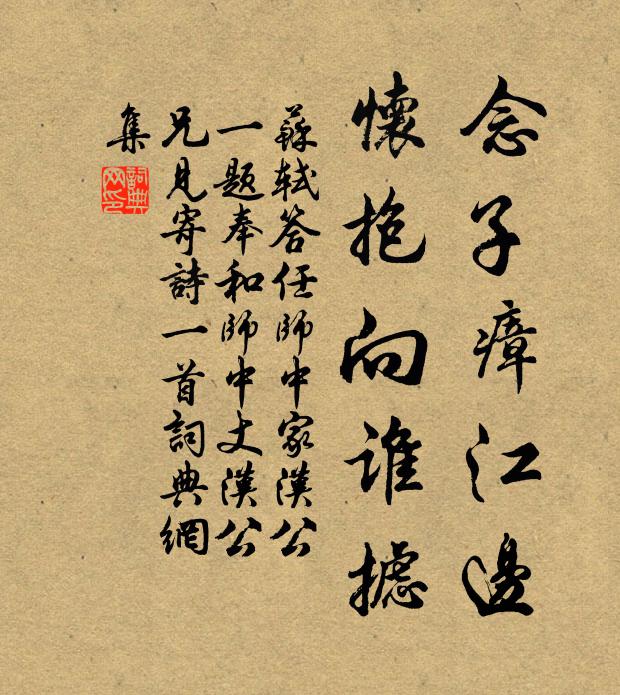 念子瘴江邊
懷抱向誰攄
蘇軾答任師中家漢公
一題奉和師中丈漢公
兄見寄詩一首詞典網
集
詞典
网印